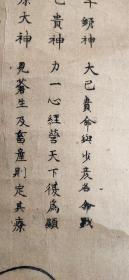 神　大己貴命與少彦名命戮
己貴神　力一心經營天下復為顯
大神　見蒼生及畜産則定其療